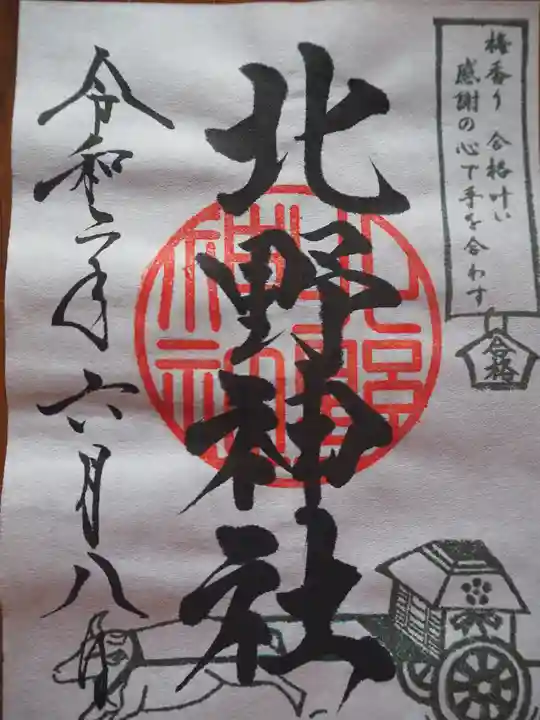 梅香り 合格叶い
感謝の心で手を合わす
合格
北野神社
北野神社
令和六年六月八日